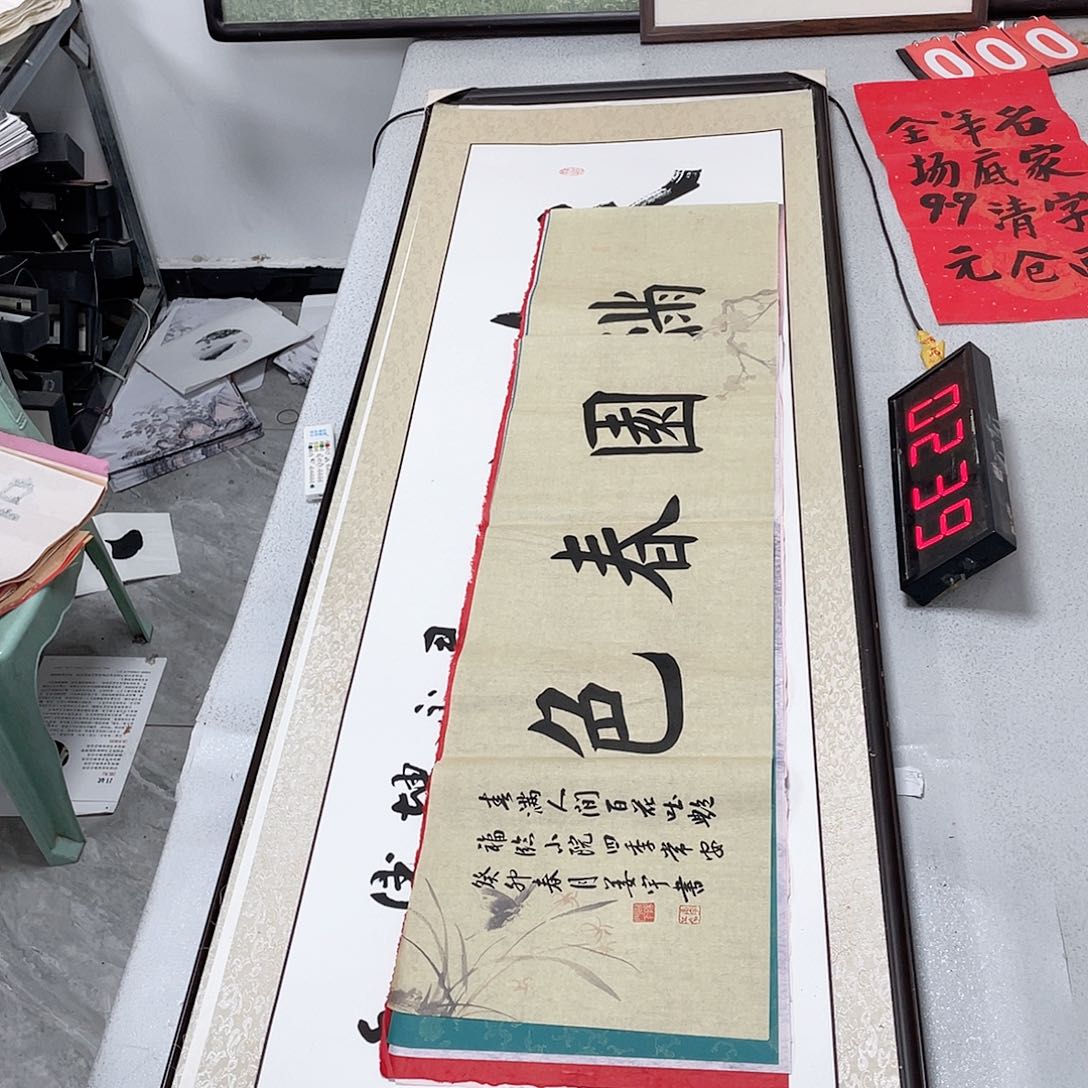 满園春色
春满人间百花吐艳
福临小院四季常安
癸卯春月姜宇書
000
名家字画
年底清仓
全场9.9元
0239